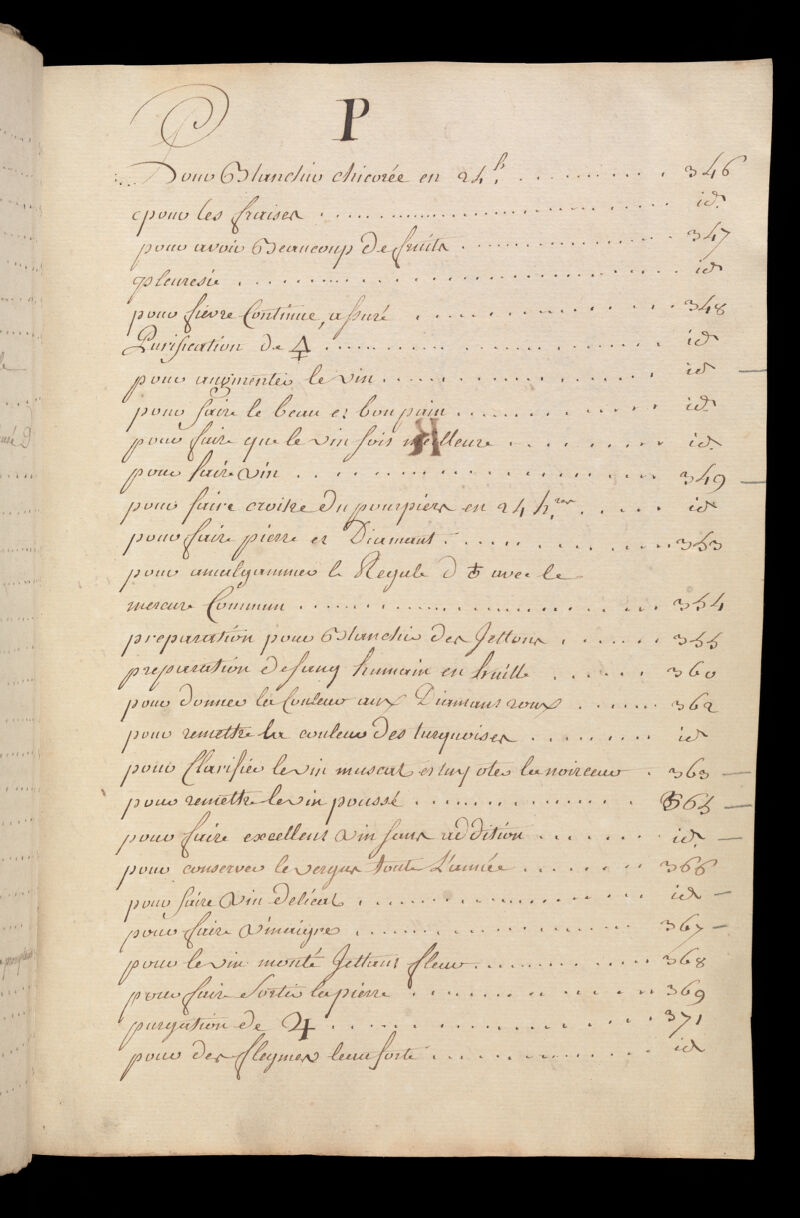 P
Pour Blanchir chicorée en 24 h. 346
pour les fraises id.
pour avoir Beaucoup De fruits 347
pleuresie id
pour fievre Continue, assuré 348
Purification de 🜍 id
pour augmenter le vin id —
pour faire le beau et bon pain id.
pour faire que le vin sois meilleure id.
pour faire vin 349 —
pour faire croitre Du pourpiers en 24 h.res id
pour faire pierre et Diamant 353
pour amalgammer le Regule d ♁ avec le
mercure Commun 354
preparation pour Blanchir des Jettons 355
preparation de sang humain en huille 360
pour donner la Couleur aux Diamant roux 362
pour remettre la couleur des turquoises id
pour Clarifier le vin muscat et luy oter la noirceur 363 —
pour remettre le vin poussé 365 —
pour faire excellent vin sans addition id. —
pour conserver le verjus toute L'année 366
pour faire vin delicat id —
pour faire vinaigre 367 —
pour le vin monté Jettant fleur 368
pour faire sortir la pierre 369
purgation de ♃ 371
pour des flegmes leau forte id